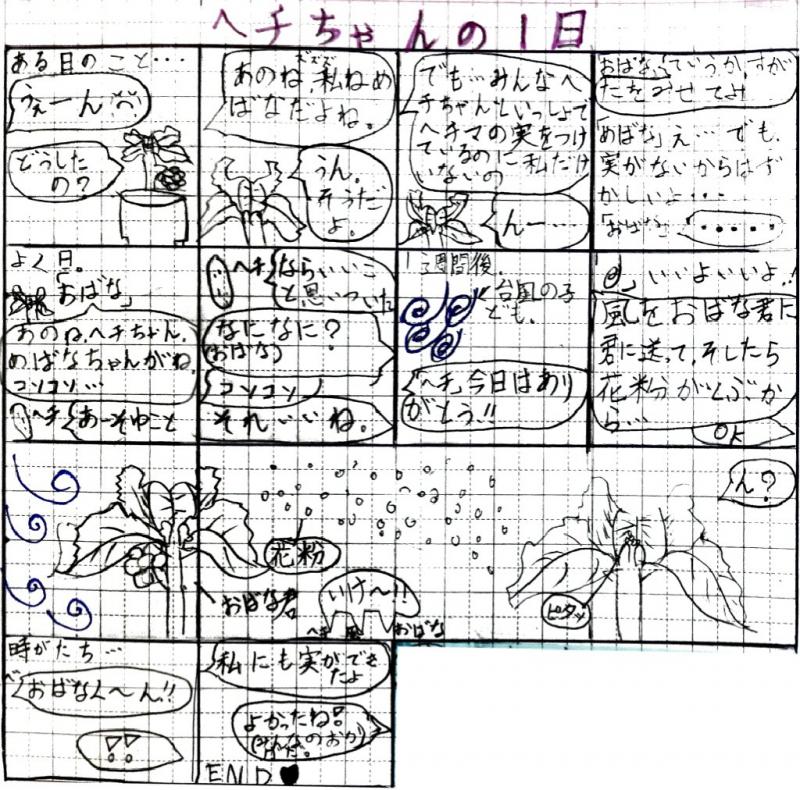 ヘチちゃんの1日
ある日のこと・・・
うえーん
どうした
の?
ズズズ
あのね、私ねめ
ばなだよね。
うん。
そうだ
よ。
でも…みんなヘ
チちゃんといっしょで
ヘチマの実をつけ
ているのに私だけ
いないの
んー…
「おばな」ていうか、すが
たをみせてよ
「めばな」え…でも、
実がないからはず
かしいよ・・・
「おばな」・・・・・
よく日。
「おばな」
あのね、ヘチちゃん、
めばなちゃんがね、
コソコソ…
ヘチ あーそゆこと
ヘチ ならいいこ
と思いついた
なになに?
(おばな)
コソコソ
それ…いいね。
1週間後、
台風の子
ども、
「ヘチ」今日はあり
がとう!!
いいよいいよ!!
風をおばな君に
君に送って、そしたら
花粉がとぶか
ら…
OK
花粉
おばな君
いけ〜!!
ヘチ 風 おばな
ん?
ピタッ
時がたち…
おばなく〜ん!!
!!
私にも実ができ
たよ
よかったね!
END